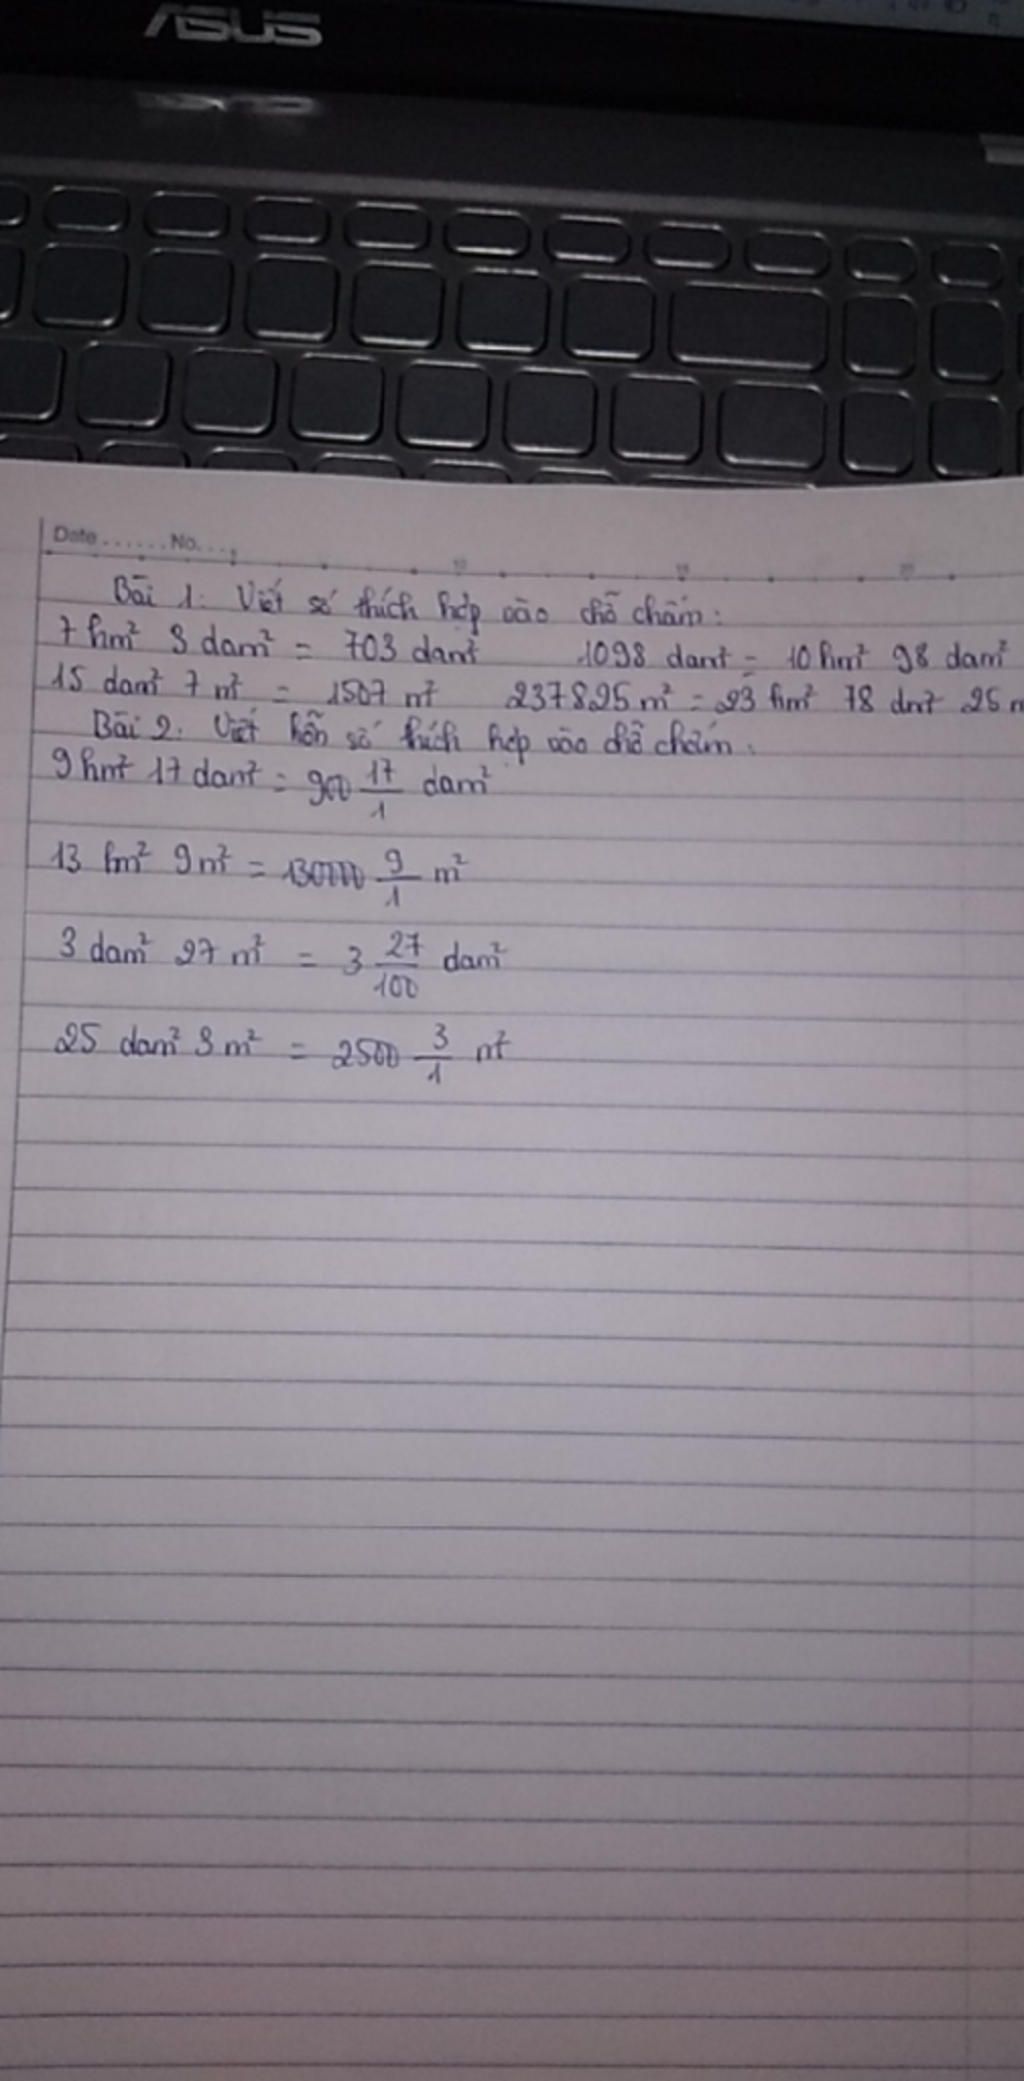 ASUS
Date ...... No. ...
Bài 1: Viết số thích hợp vào chỗ chấm:
7 hm² 3 dam² = 703 dam² 1098 dam² = 10 hm² 98 dam²
15 dam² 7 m² = 1507 m² 237825 m² = 23 hm² 78 dam² 25 m
Bài 2: Viết hỗn số thích hợp vào chỗ chấm:
9 hm² 17 dam² = 900 17/1 dam²
13 hm² 9 m² = 130000 9/1 m²
3 dam² 27 m² = 3 27/100 dam²
25 dam² 3 m² = 2500 3/1 m²